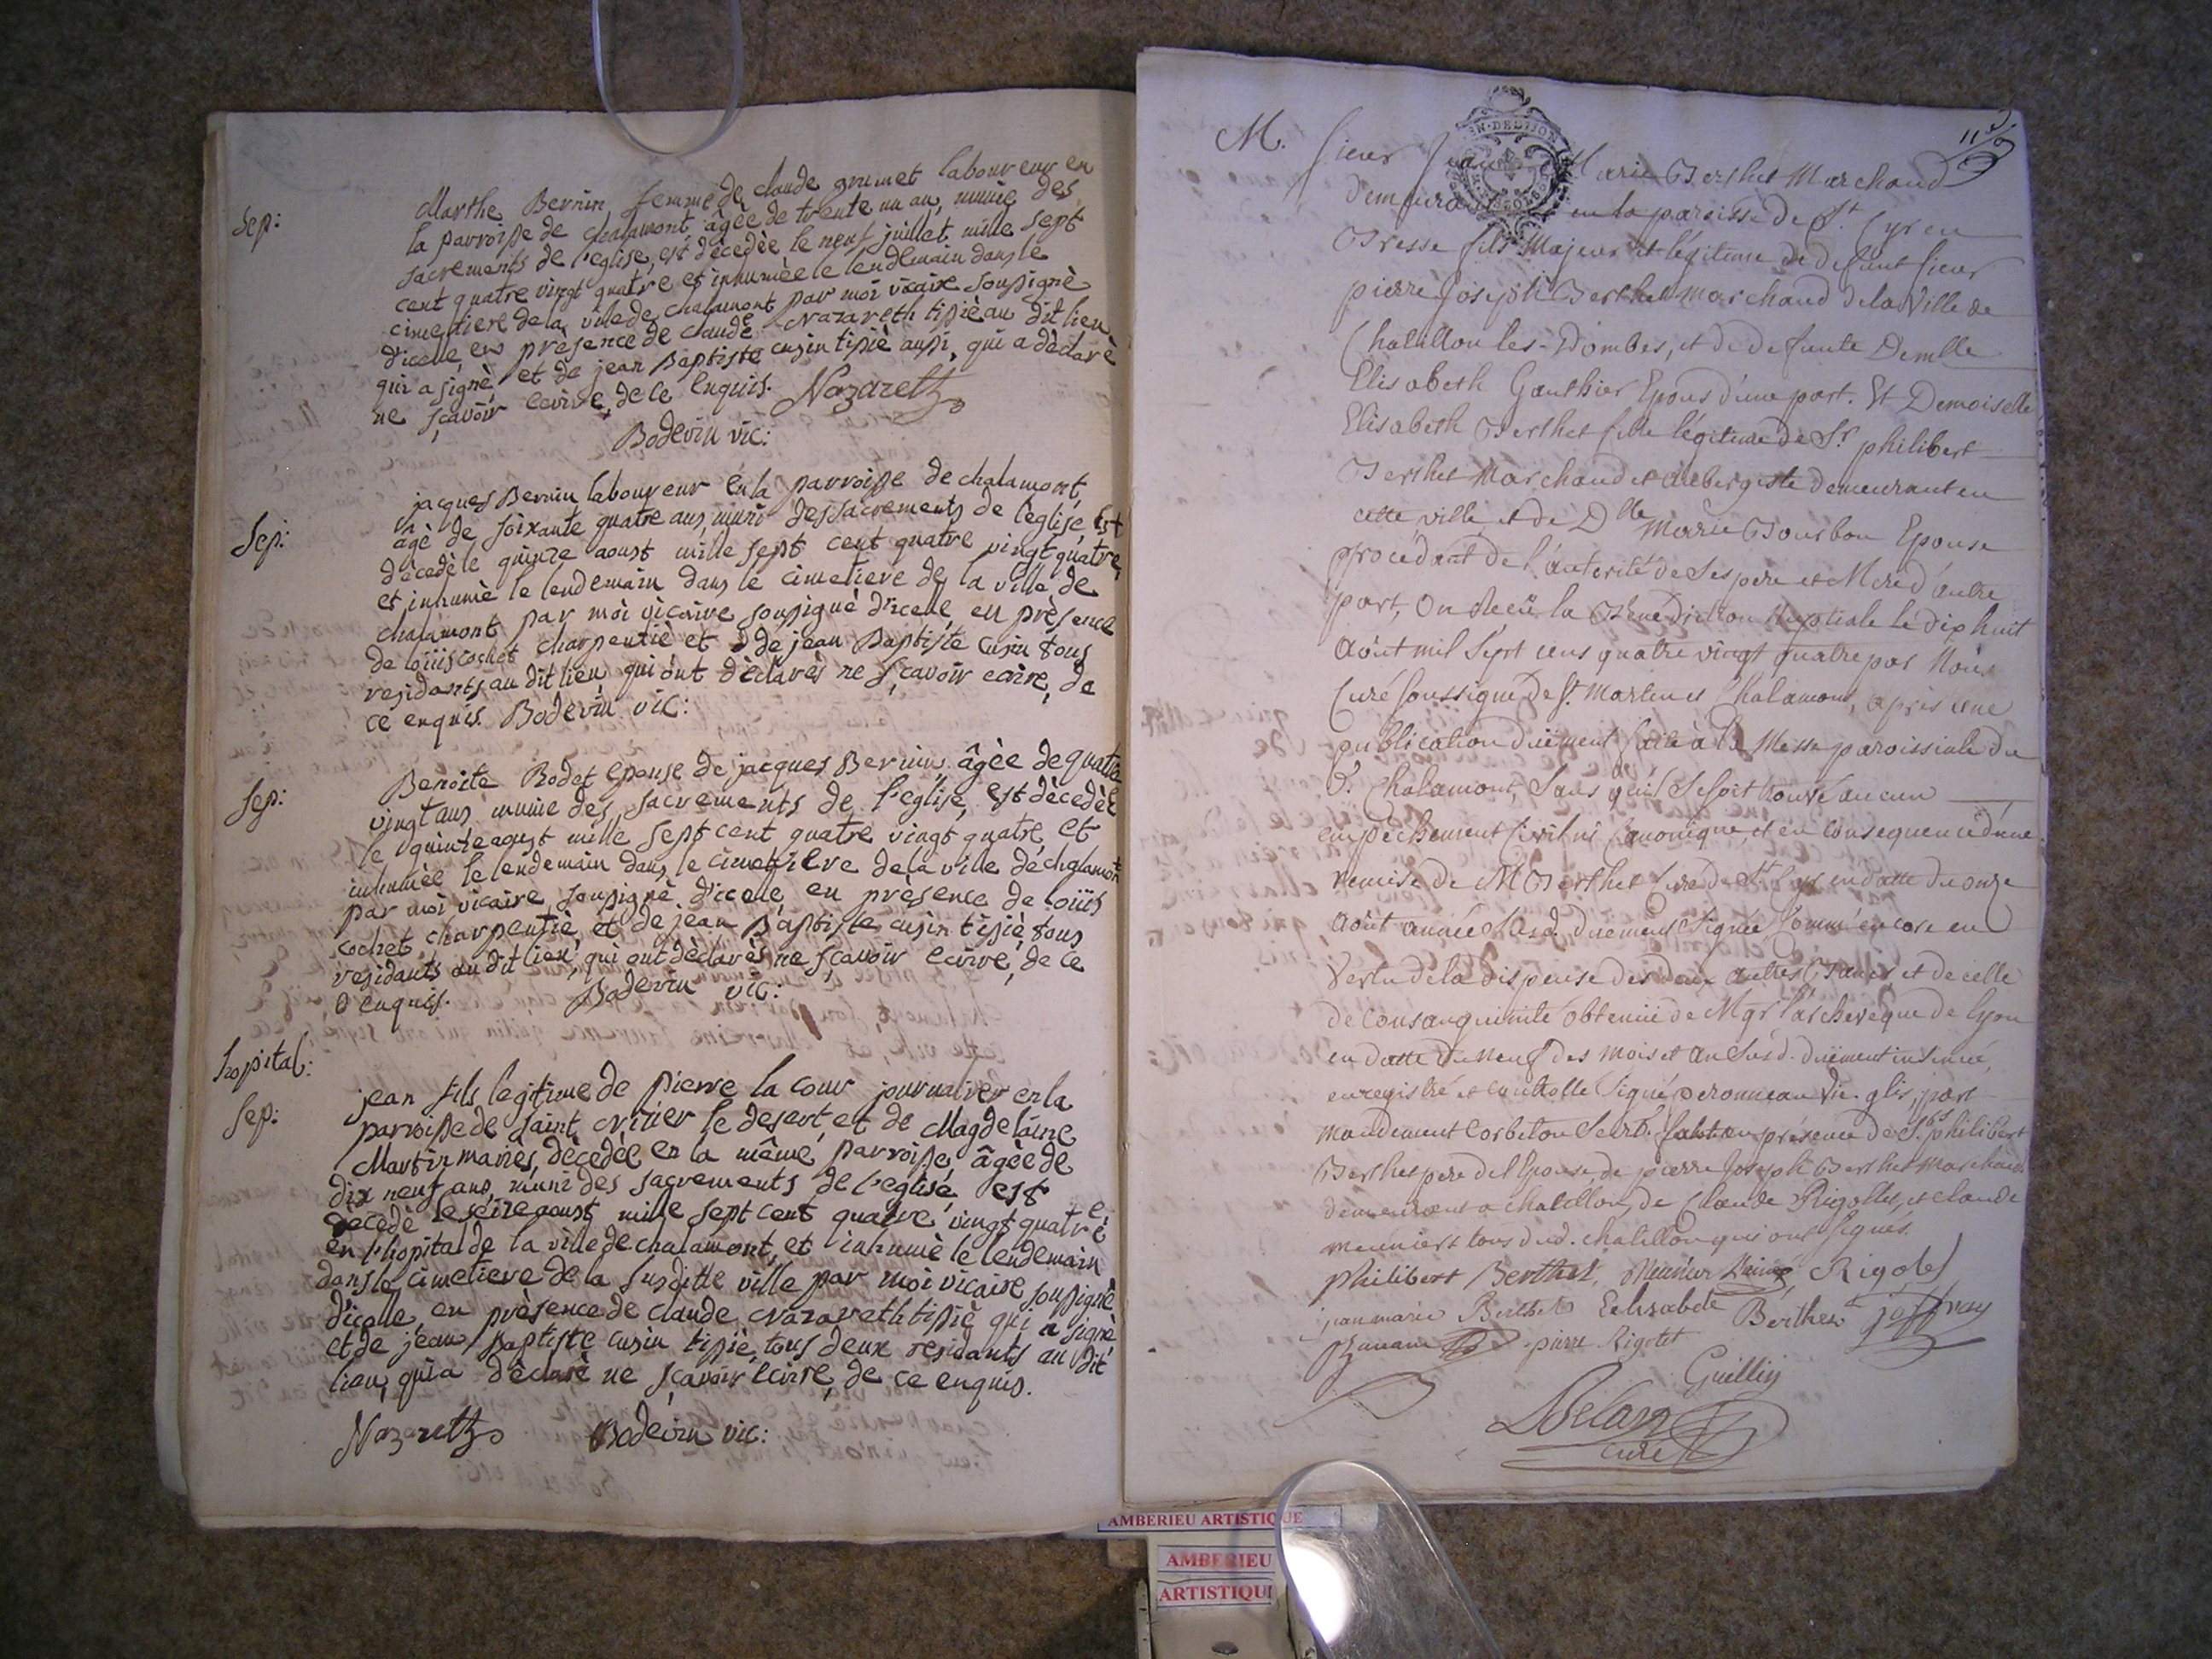 Sep:
Marthe Bernin femme de claude grumet laboureur en
la parroisse de chalamont, âgèe de trente un an, munie des
sacrements de l'eglise, est dècedèe le neuf juillet mille sept
cent quatre vingt quatre et inhumèe le lendemain dans le
cimetiere de la ville de chalamont par moi vicaire soussignè
d'icelle, en presence de claude Nazareth tissiè au dit lieu
qui a signè, et de jean Baptiste cusin tissiè aussi, qui a dèclarè
ne sçavoir ecrire, de ce enquis. Nazareth
Bodevin vic:
Sep:
jacques Bernin laboureur en la parroisse de chalamont,
âgè de soixante quatre ans, muni des sacrements de l'eglise, est
dècedè le quinze aoust mille sept cent quatre vingt quatre,
et inhumè le lendemain dans le cimetiere de la ville de
chalamont par moi vicaire soussignè d'icelle, en prèsence
de loüis cochet charpentiè et de jean Baptiste cusin tous
residants au dit lieu, qui ont dèclarès ne sçavoir ecrire, de
ce enquis. Bodevin vic:
Sep:
Benoite Rodet epouse de jacques Bernin âgèe de quatre
vingt ans munie des sacrements de l'eglise, est dècedèe
le quinze aoust mille sept cent quatre vingt quatre, et
inhumèe le lendemain dans le cimetiere de la ville de chalamont
par moi vicaire soussignè d'icelle, en prèsence de loüis
cochet charpentiè et de jean Baptiste cusin tissiè tous
residants au dit lieu, qui ont dèclarès ne sçavoir ecrire, de ce
enquis. Bodevin vic:
hopital:
Sep:
jean fils legitime de pierre la cour journalier en la
parroisse de saint nizier le desert, et de Magdelaine
Martin mariès, dècedèe en la même parroisse, âgèe de
dix neuf ans, muni des sacrements de l'eglise, est
dècedè le seize aoust mille sept cent quatre vingt quatre
en l'hopital de la ville de chalamont, et inhumè le lendemain
dans le cimetiere de la susditte ville par moi vicaire soussignè
d'icelle, en prèsence de claude Nazareth tissiè qui a signè
et de jean Baptiste cusin tissiè, tous deux residants au dit
lieu, qui a dèclarè ne sçavoir ecrire, de ce enquis.
Nazareth Bodevin vic:
EN. DE DIJON
M. sieur Jean Marie Berthet Marchand
demeurant en la paroisse de St. Cyr en
Bresse fils Majeur et légitime de defunt sieur
pierre Joseph Berthet marchand de la Ville de
Chatillon les-Dombes, et de defunte Demlle
Elisabeth Gauthier Epous d'une part. Et Demoiselle
Elisabeth Berthet fille légitime de Sr. philibert
Berthet Marchand et aubergiste demeurant en
cette ville et de Dlle Marie Bourbon Epouse
procédant de l'autorité de Ses pere et Mere d'autre
part, On Reçu la Bénédiction Nuptiale le dix huit
Aôut mil Sept cens quatre vingt quatre par Nous
Curé soussigné de St. Martin et Chalamont, après une
publication düement faite à la Messe paroissiale du
d. Chalamont, Sans qu'il Se soit trouvé aucun
empêchement Civil ni Canonique, et en consequence d'une
remise de M Berthet Curé de St Cyr en datte du onze
Aôut année Susd. düement Signée Comm'encore en
Vertu de la dispense des deux autres Bancs, et de celle
de consanguinité obtenüe de Mgr l'archevêque de lyon
en datte du neuf des mois et an Susd. düement insinuée,
enregistré et controllé Signé peronneau Vic. glis, part
mandement Corbeton Secrt. fait en présence de Srs philibert
Berthet pere de l'Epouse, de pierre Joseph Berthet Marchand
demeurant a chatillon, de Claude Rigollet, et claude
meunier tous dud. chatillon qui ont Signés.
philibert Berthet, Meunier Rigolet
jean marie Berthet Elisabete Berthet jeffray
pierre Rigolet
Guillin
Delan
curé
AMBERIEU ARTISTIQUE
AMBERIEU
ARTISTIQU